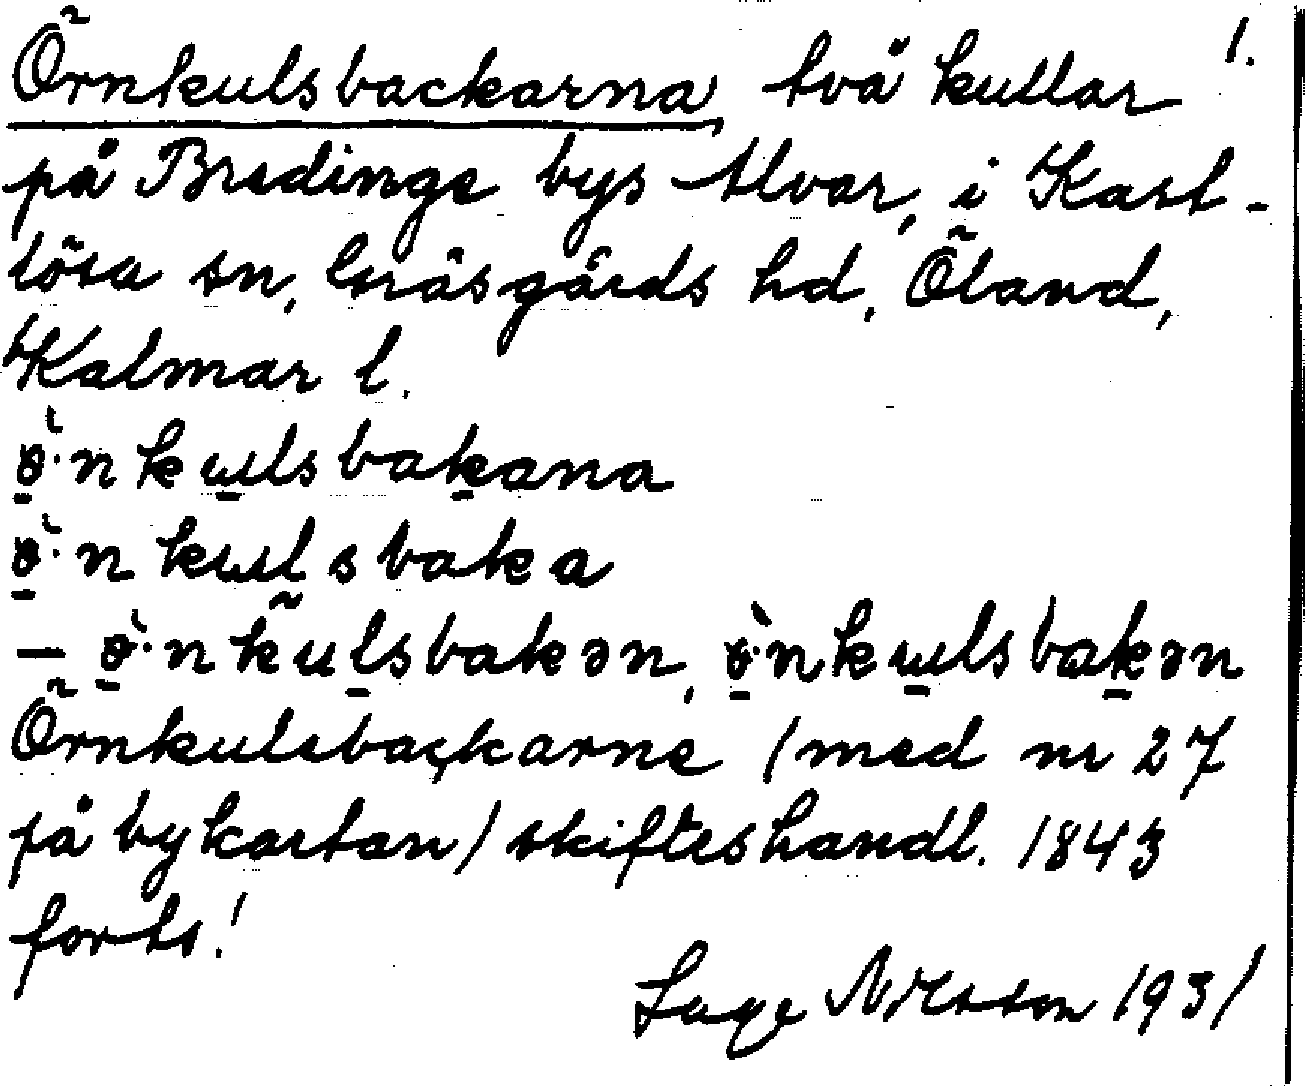 Örnkulsbackarna, två kullar 1.
på Bredinge bys Alvar, i Kast-
lösa sn, Gräsgårds hd, Öland,
Kalmar l.
ɵ̀·nkɯlsbakana
ɵ̀·nkɯlsbaka
— ɵ̀·nkulsbakən, ɵ̀·nkɯlsbakən
Örnkulsbackarne (med nr 27
på bykartan) skifteshandl. 1843
forts!
Lage Nilsson 1931